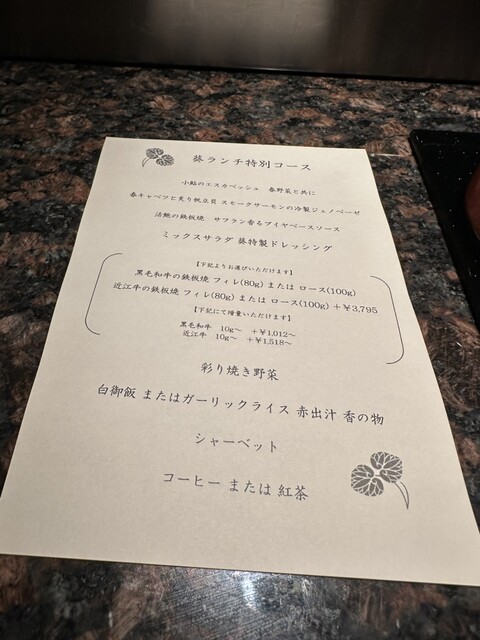 葵ランチ特別コース
小鮎のエスカベッシュ 春野菜と共に
春キャベツと炙り帆立貝 スモークサーモンの冷製ジェノベーゼ
活鮑の鉄板焼 サフラン香るブイヤベースソース
ミックスサラダ 葵特製ドレッシング
【下記よりお選びいただけます】
黒毛和牛の鉄板焼 フィレ(80g) または ロース(100g)
近江牛の鉄板焼 フィレ(80g) または ロース(100g) +￥3,795
【下記にて増量いただけます】
黒毛和牛 10g～ +￥1,012～
近江牛 10g～ +￥1,518～
彩り焼き野菜
白御飯 またはガーリックライス 赤出汁 香の物
シャーベット
コーヒー または 紅茶